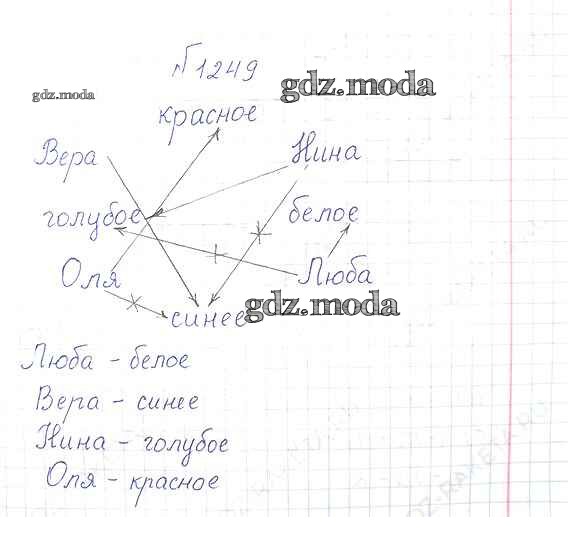 №1249
gdz.moda
gdz.moda
красное
Вера
Нина
голубое
белое
Оля
Люба
синее
gdz.moda
Люба - белое
Вера - синее
Нина - голубое
Оля - красное